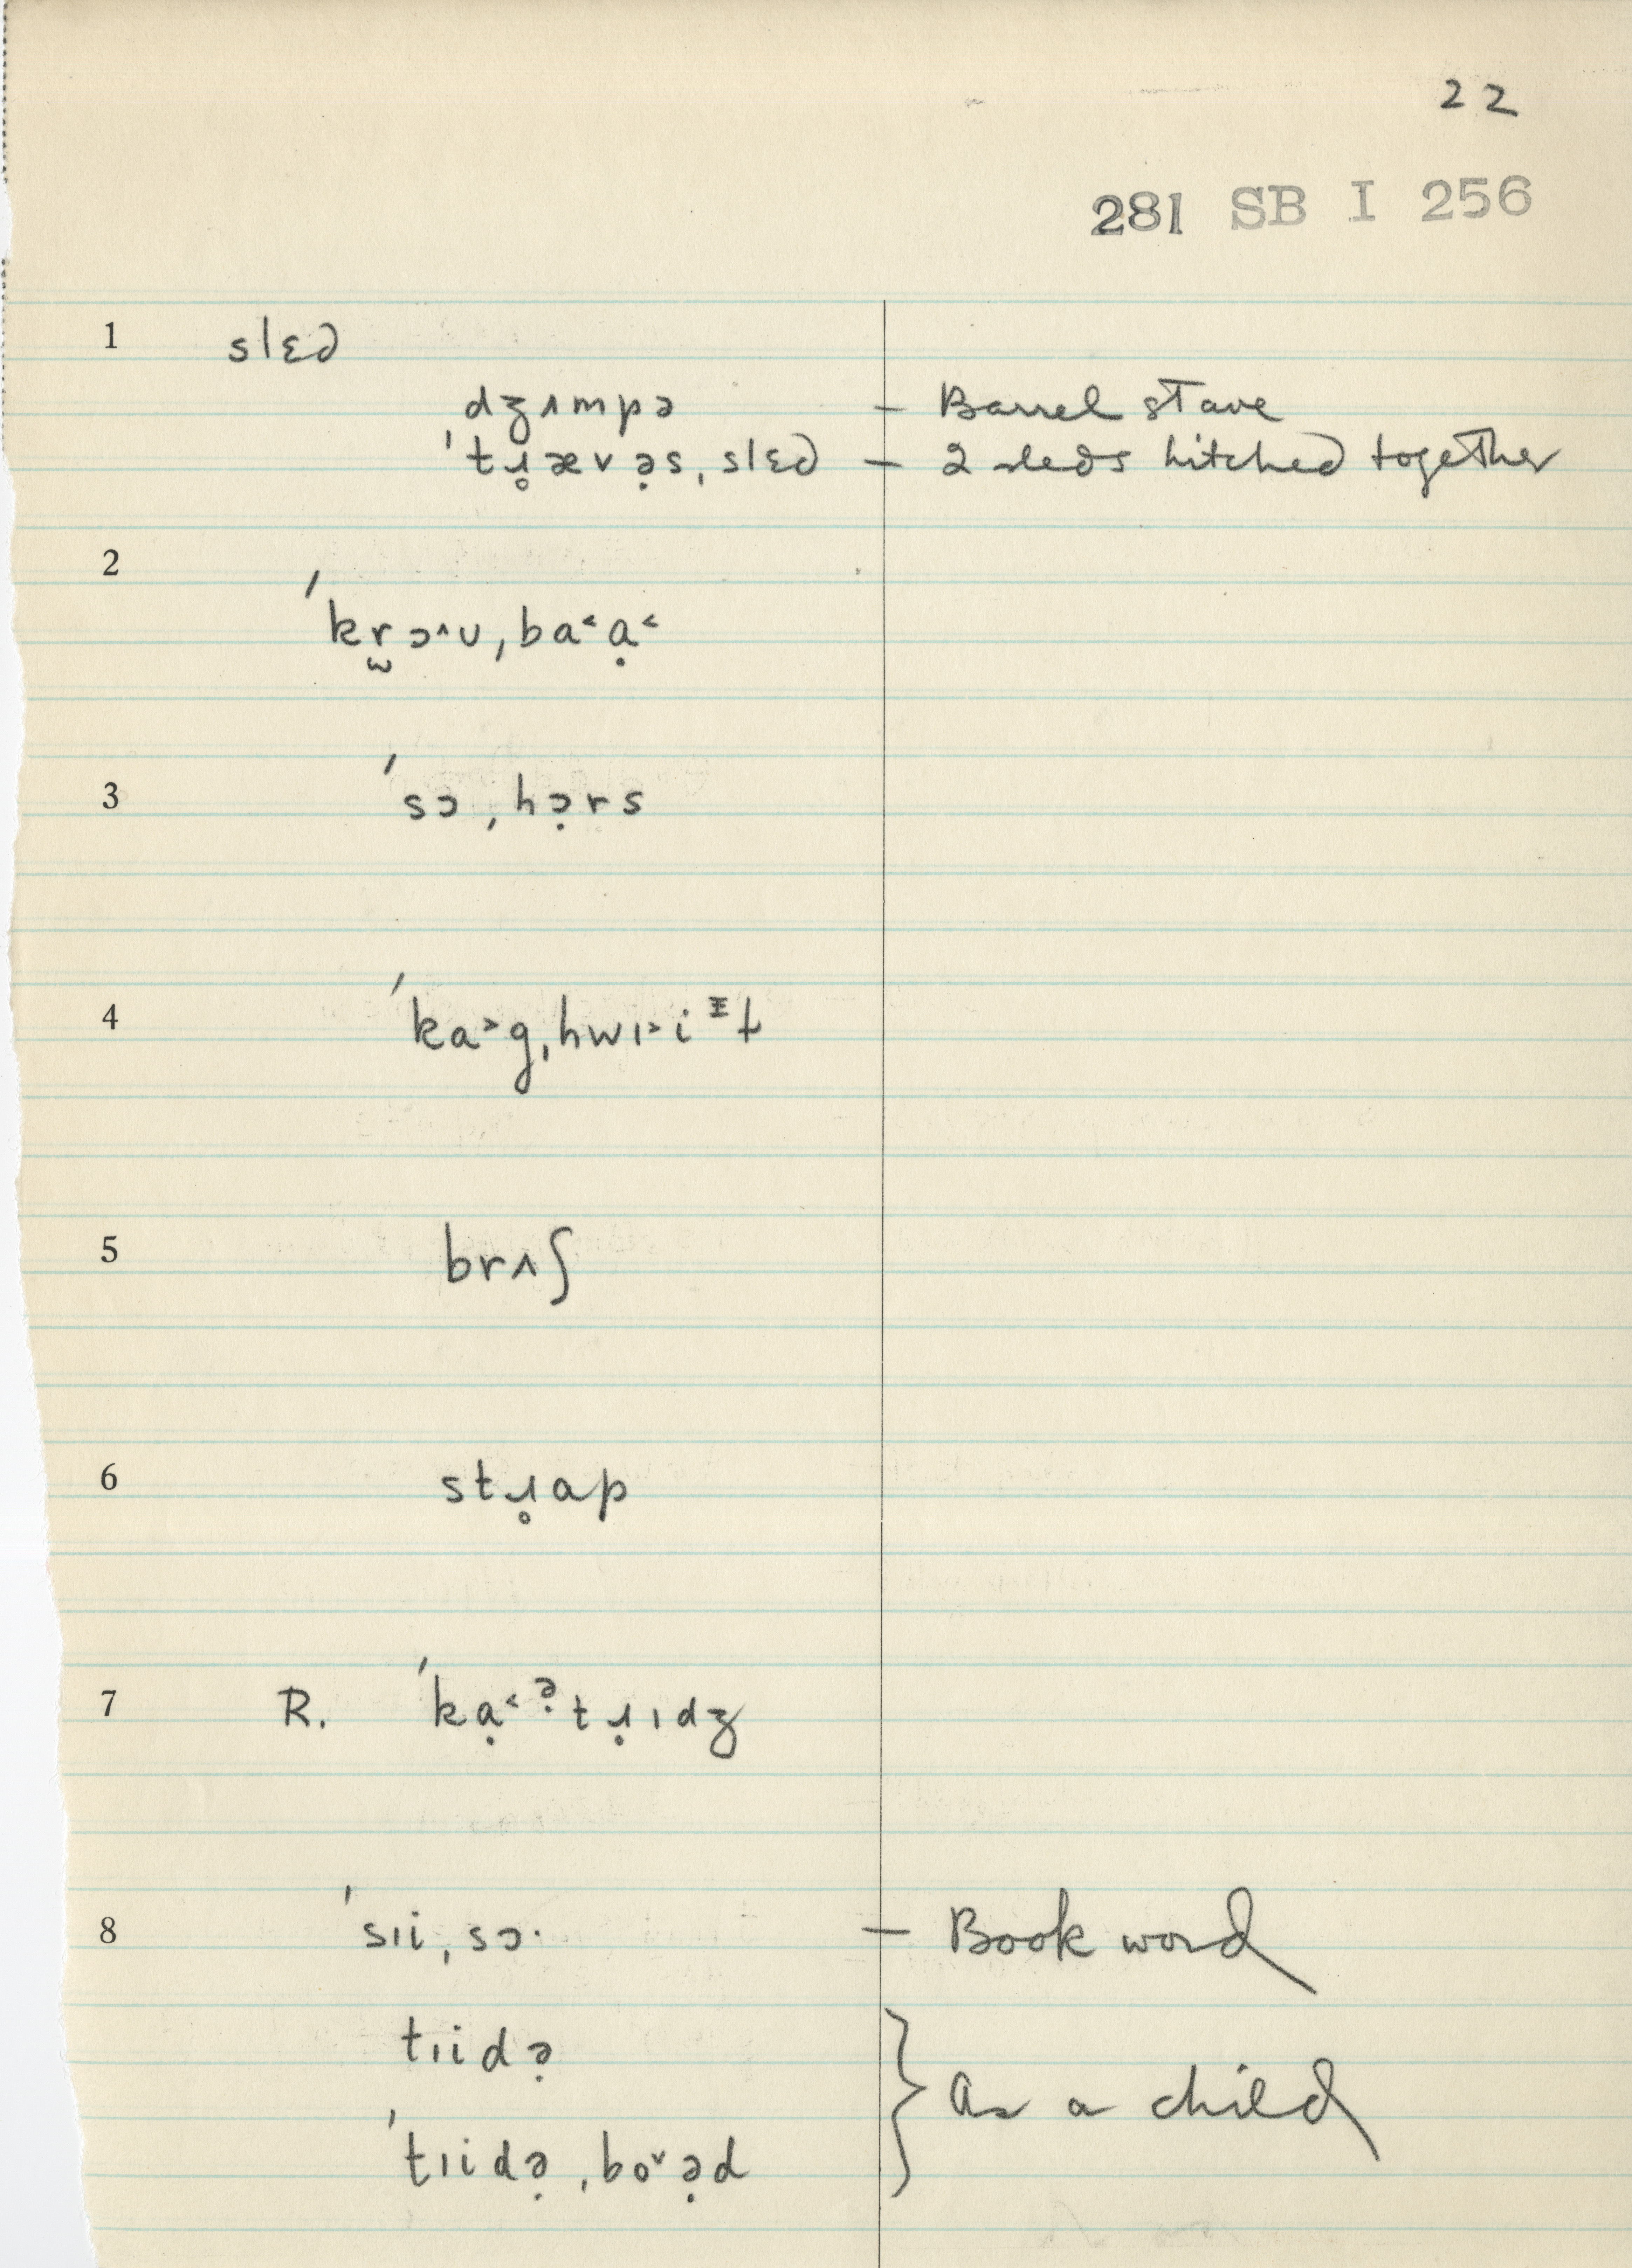 22
281 SB I 256
1 slɛd
dʒʌmpə – Barrel stave
ˈtɹ̥ævə̣s ˌslɛd – 2 sleds hitched together
2 ˈkr̫ɔ^ʊ ˌba˂ạ˂
3 ˈsɔ ˌhɔ̣rs
4 ˈka˃g ˌhwɪ˃iᵻɫ
5 brʌʃ
6 stɹ̥ap
7 R. ˈkạ˂ᵊ̣tɹ̣ɪdʒ
8 ˈsɪi ˌsɔ· – Book word
tɪidə̣
As a child
ˈtɪidə̣ ˌbo˅ə̣d